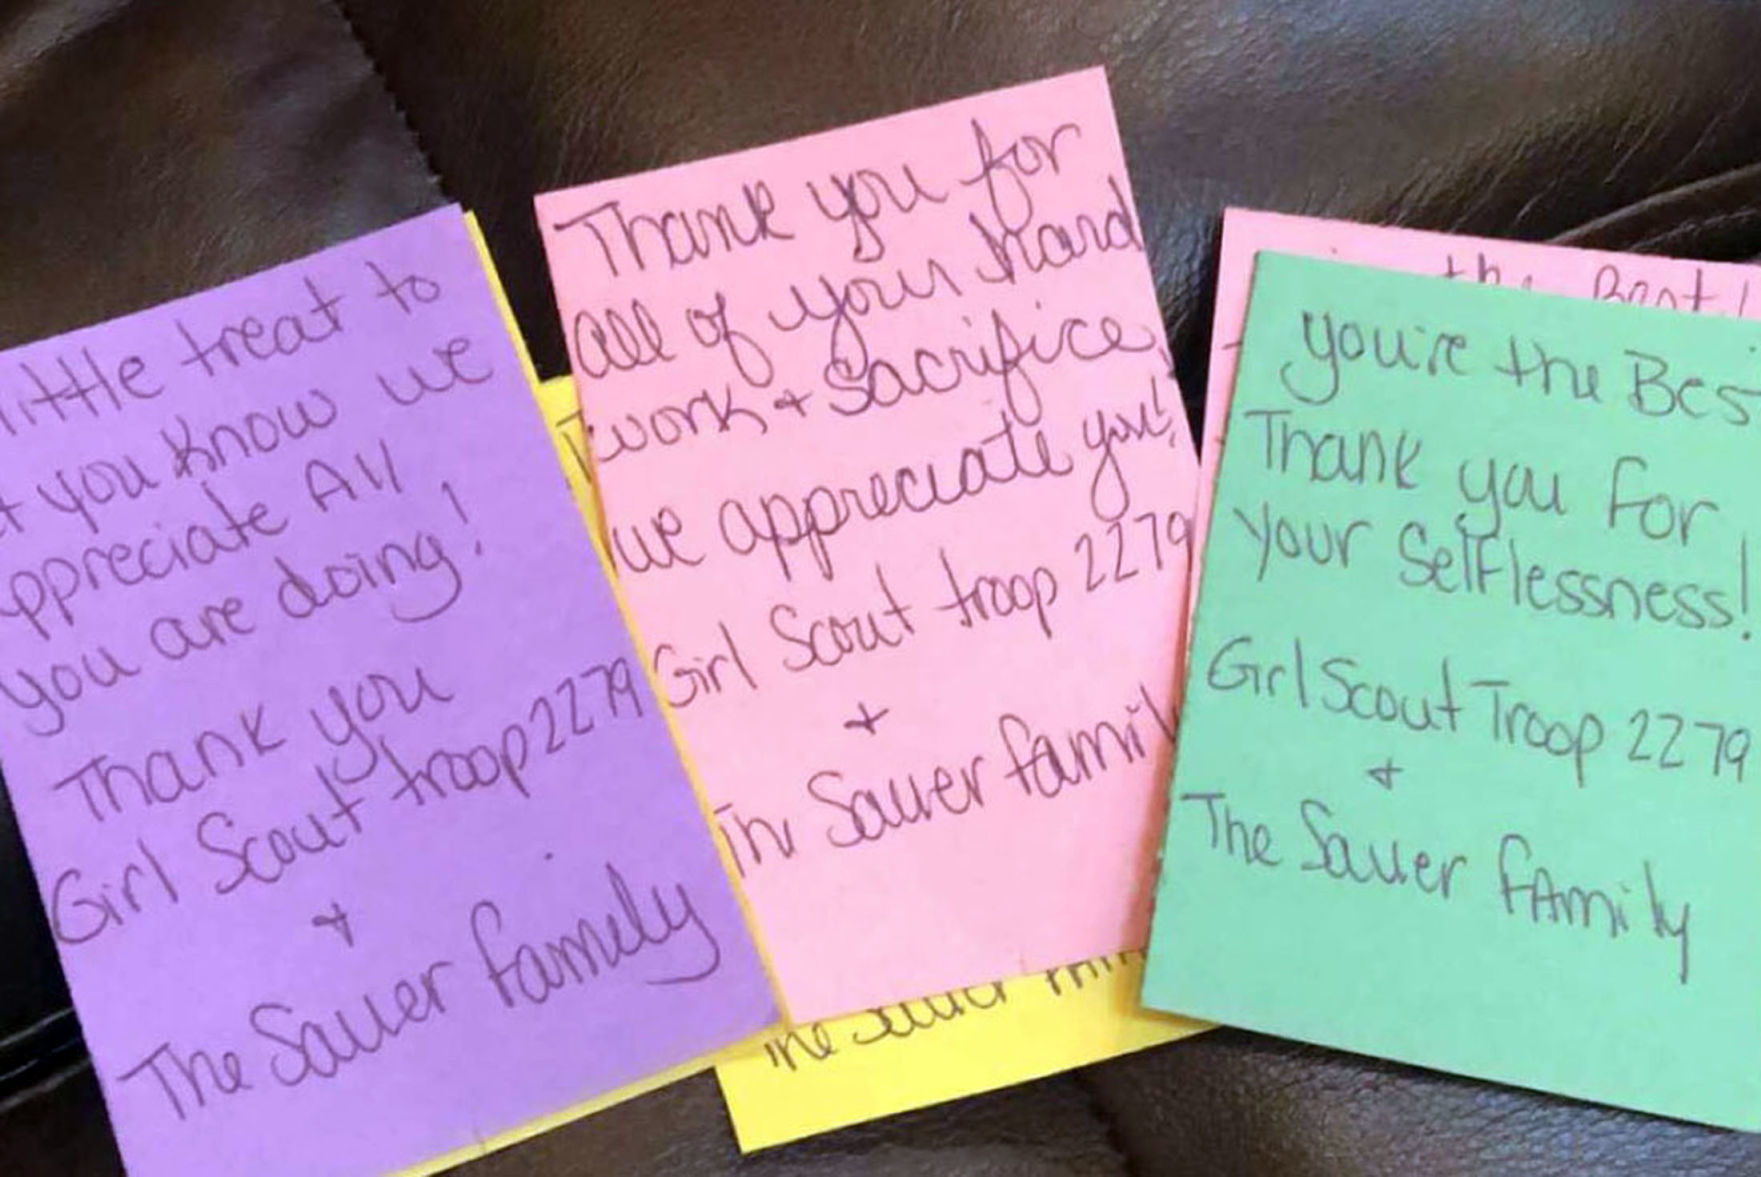 little treat to
you know we
appreciate All
you are doing!
Thank you
Girl Scout troop 2279
+
The Sauer family
Thank you for
all of your hard
work + Sacrifice,
we appreciate you!
Girl Scout troop 2279
+
The Sauer family
The Sauer
the Best!
you're the Bes
Thank you For
your Selflessness!
Girl Scout Troop 2279
+
The Sauer FAmily